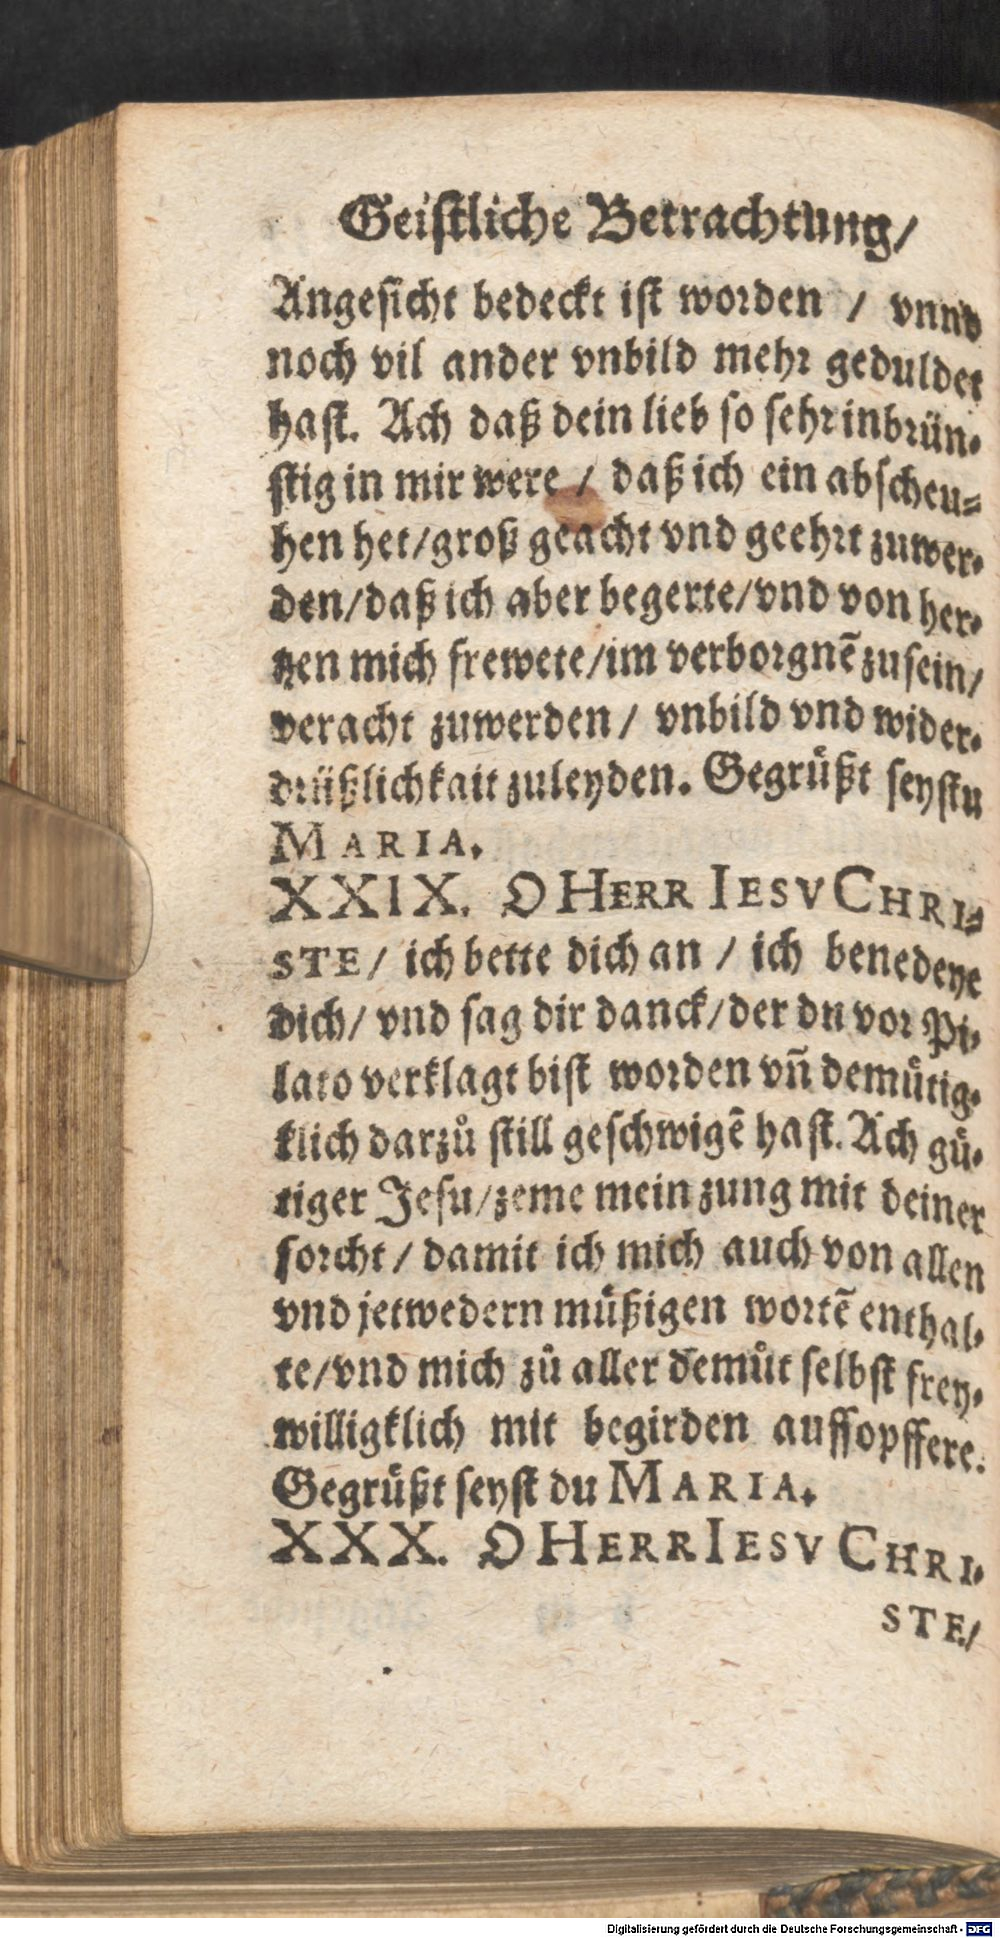 Geistliche Betrachtung/
Angesicht bedeckt ist worden / vnnd
noch vil ander vnbild mehr geduldet
hast. Ach daß dein lieb so sehr inbrün-
stig in mir were / daß ich ein abscheu-
hen het/groß geacht vnd geehrt zuwer-
den/daß ich aber begerte/vnd von her-
tzen mich frewete/im verborgnẽ zu sein/
veracht zuwerden / vnbild vnd wider-
drüßlichkait zuleyden. Gegrüßt seystu
MARIA.
XXIX. O HERR IESV CHRI-
STE / ich bette dich an / ich benedeye
dich/ vnd sag dir danck/der du vor Pi-
lato verklagt bist worden vñ demütig-
klich darzů still geschwigẽ hast. Ach gü-
tiger Jesu/zeme mein zung mit deiner
forcht / damit ich mich auch von allen
vnd jetwedern müßigen wortẽ enthal-
te/vnd mich zů aller demůt selbst frey-
willigklich mit begirden auffopffere.
Gegrüßt seyst du MARIA.
XXX. O HERR IESV CHRI-
STE/
Digitalisierung gefördert durch die Deutsche Forschungsgemeinschaft - DFG